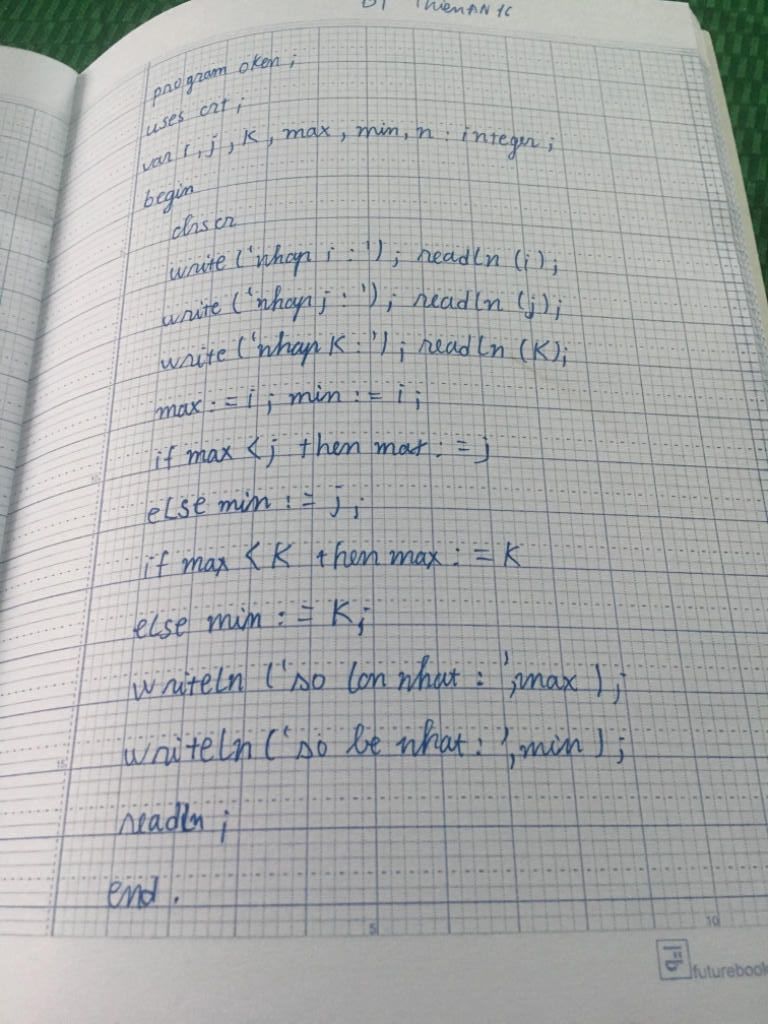 program oken ;
uses crt ;
var i, j, K, max, min, n : integer ;
begin
clrscr
write ('nhap i : ') ; readln (i) ;
write ('nhap j : ') ; readln (j) ;
write ('nhap K : ') ; readln (K) ;
max : = i ; min : = i ;
if max < j then mat : = j
else min : = j ;
if max < K then max : = K
else min : = K ;
writeln ('so lon nhat : ', max ) ;
writeln ('so be nhat : ', min ) ;
readln ;
end .
15
5
10
futurebook